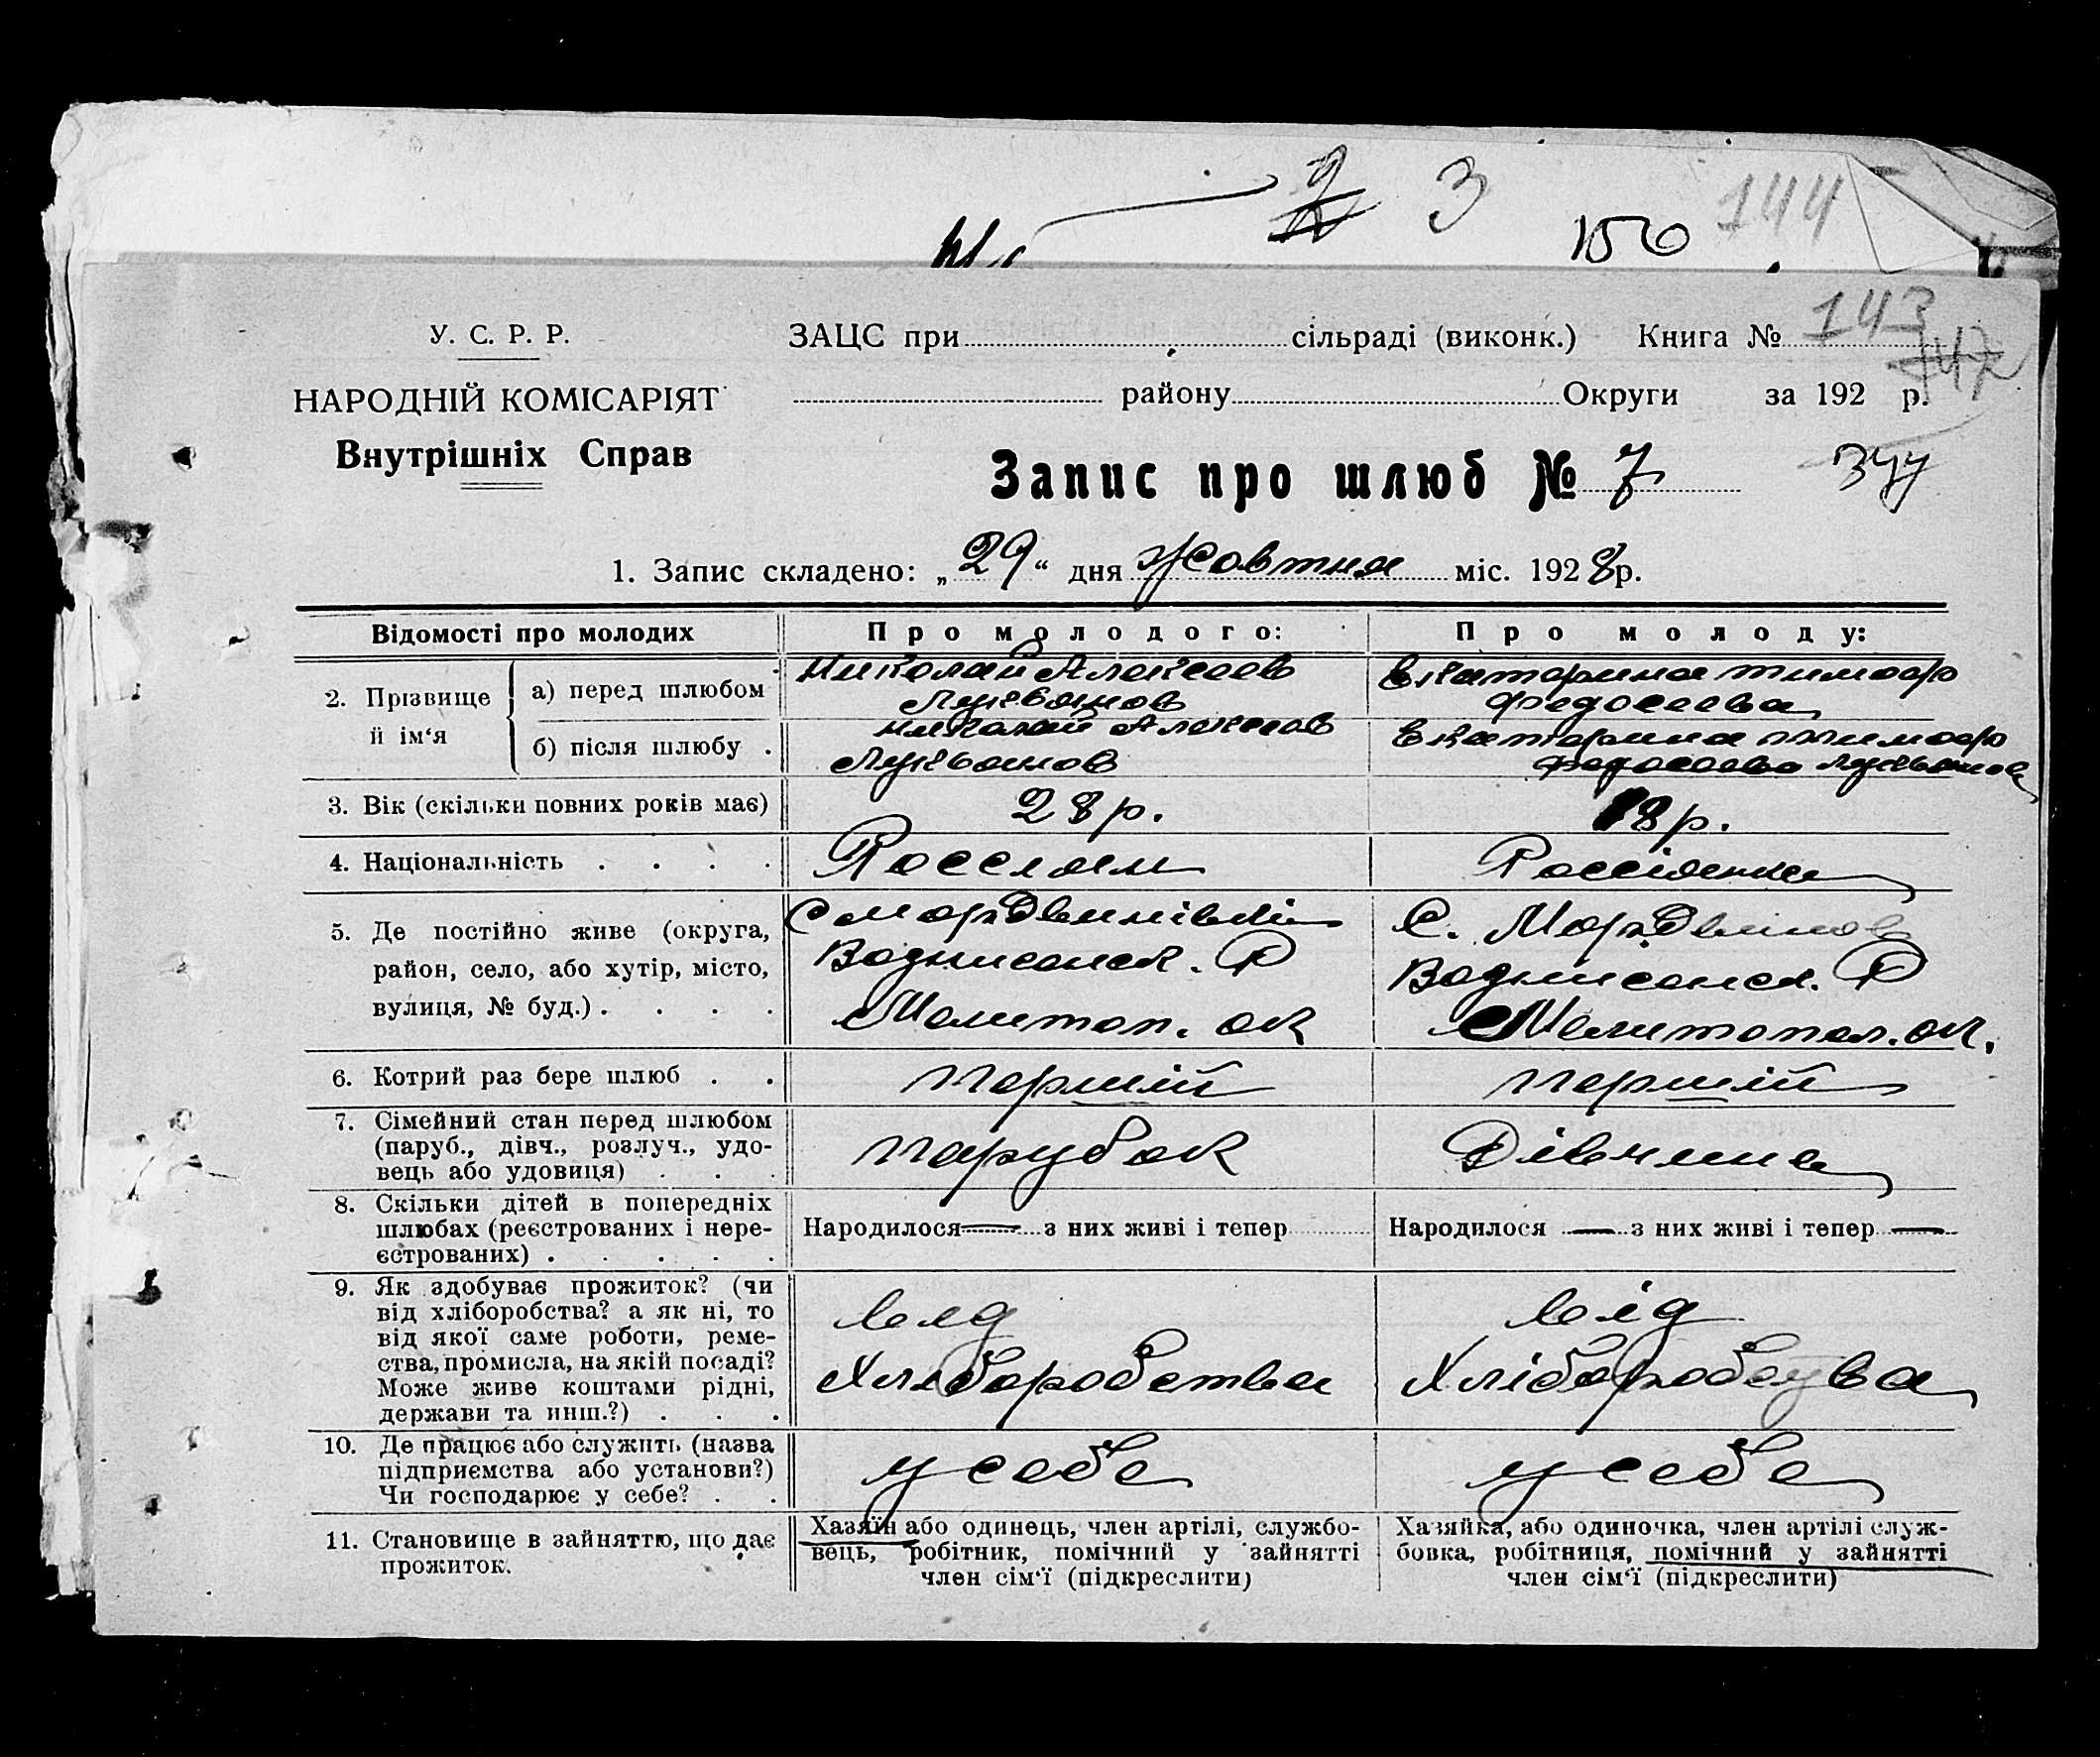 3
150
144
У. С. Р. Р.
ЗАЦС при сільраді (виконк.) Книга № 143
142
НАРОДНІЙ КОМІСАРІЯТ
району Округи за 192 р.
Внутрішніх Справ
Запис про шлюб № 7
377
1. Запис складено: „29“ дня Жовтня міс. 1928р.
Відомості про молодих
Про молодого:
Про молоду:
2. Прізвище й ім‘я
а) перед шлюбом
Николай Алексеев
Лукьянов
Екатерина тимоф
Федосеева
б) після шлюбу .
николай Алексеев
Лукьянов
Екатерина тимоф
федосеева Лукьянова
3. Вік (скільки повних років має)
28 р.
18 р.
4. Національність . . . .
Россіянка
5. Де постійно живе (округа,
район, село, або хутір, місто,
вулиця, № буд.) . . . .
С. Мордвинов
Мелитоп. ок
Мелитопол. ок.
6. Котрий раз бере шлюб . .
першій
першій
7. Сімейний стан перед шлюбом
(паруб., дівч., розлуч., удо-
вець або удовиця) . . .
парубок
Дівчина
8. Скільки дітей в попередніх
шлюбах (реєстрованих і нере-
єстрованих) . . . . .
Народилося — з них живі і тепер
Народилося — з них живі і тепер —
9. Як здобуває прожиток? (чи
від хліборобства? а як ні, то
від якої саме роботи, реме-
ства, промисла, на якій посаді?
Може живе коштами рідні,
держави та инш.?) . . .
від
Хліборобства
від
Хліборобства
10. Де працює або служить (назва
підприємства або установи?)
Чи господарює у себе? . .
у себе
у себе
11. Становище в зайняттю, що дає
прожиток.
Хазяїн або одинець, член артілі, службо-
вець, робітник, помічний у зайнятті
член сім‘ї (підкреслити)
Хазяйка, або одиночка, член артілі служ-
бовка, робітниця, помічний у зайнятті
член сім‘ї (підкреслити)